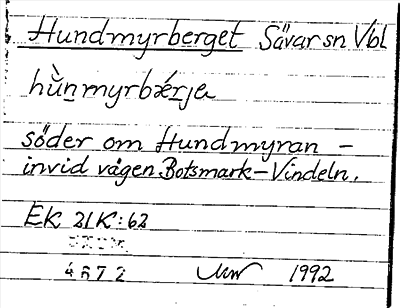 Hundmyrberget Sävar sn Vbl
hu̇̀n̲myrbǽr̲ja
söder om Hundmyran –
invid vägen Botsmark–Vindeln.
EK 21K:62
4672 1992